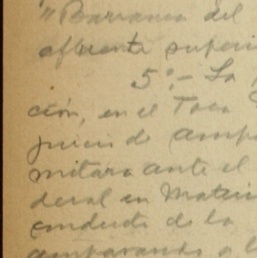 "Barranca del
afluente superi
5º.- La
ción, en el Toca
juicio de ampa
mitara ante el
deral en Materia
conducto de la
amparando a l